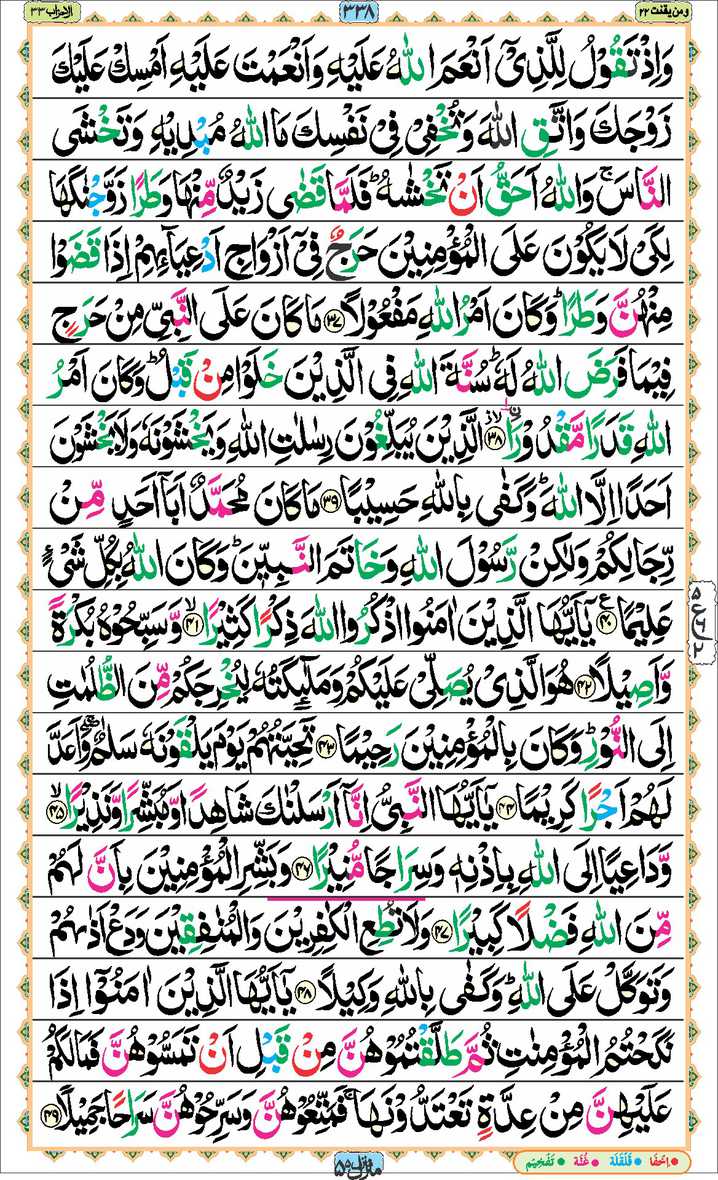 ومن یقنت ٢٢
٣٣٨
الاحزاب ٣٣
وَاِذْ تَقُوْلُ لِلَّذِیْۤ اَنْعَمَ اللّٰهُ عَلَیْهِ وَاَنْعَمْتَ عَلَیْهِ اَمْسِكْ عَلَیْكَ
زَوْجَكَ وَاتَّقِ اللّٰهَ وَتُخْفِیْ فِیْ نَفْسِكَ مَا اللّٰهُ مُبْدِیْهِ وَتَخْشَی
النَّاسَ ۚ وَاللّٰهُ اَحَقُّ اَنْ تَخْشٰىهُ ؕ فَلَمَّا قَضٰی زَیْدٌ مِّنْهَا وَطَرًا زَوَّجْنٰكَهَا
لِكَیْ لَا یَكُوْنَ عَلَی الْمُؤْمِنِیْنَ حَرَجٌ فِیْۤ اَزْوَاجِ اَدْعِیَآىِٕهِمْ اِذَا قَضَوْا
مِنْهُنَّ وَطَرًا ؕ وَكَانَ اَمْرُ اللّٰهِ مَفْعُوْلًا ﴿٣٧﴾ مَا كَانَ عَلَی النَّبِیِّ مِنْ حَرَجٍ
فِیْمَا فَرَضَ اللّٰهُ لَهٗ ؕ سُنَّةَ اللّٰهِ فِی الَّذِیْنَ خَلَوْا مِنْ قَبْلُ ؕ وَكَانَ اَمْرُ
اللّٰهِ قَدَرًا مَّقْدُوْرَا ﴿٣٨﴾ الَّذِیْنَ یُبَلِّغُوْنَ رِسٰلٰتِ اللّٰهِ وَیَخْشَوْنَهٗ وَلَا یَخْشَوْنَ
اَحَدًا اِلَّا اللّٰهَ ؕ وَكَفٰی بِاللّٰهِ حَسِیْبًا ﴿٣٩﴾ مَا كَانَ مُحَمَّدٌ اَبَاۤ اَحَدٍ مِّنْ
رِّجَالِكُمْ وَلٰكِنْ رَّسُوْلَ اللّٰهِ وَخَاتَمَ النَّبِیّٖنَ ؕ وَكَانَ اللّٰهُ بِكُلِّ شَیْءٍ
عَلِیْمًا ﴿٤٠﴾ یٰۤاَیُّهَا الَّذِیْنَ اٰمَنُوا اذْكُرُوا اللّٰهَ ذِكْرًا كَثِیْرًا ﴿٤١﴾ وَّسَبِّحُوْهُ بُكْرَةً
وَّاَصِیْلًا ﴿٤٢﴾ هُوَ الَّذِیْ یُصَلِّیْ عَلَیْكُمْ وَمَلٰٓىِٕكَتُهٗ لِیُخْرِجَكُمْ مِّنَ الظُّلُمٰتِ
اِلَی النُّوْرِ ؕ وَكَانَ بِالْمُؤْمِنِیْنَ رَحِیْمًا ﴿٤٣﴾ تَحِیَّتُهُمْ یَوْمَ یَلْقَوْنَهٗ سَلٰمٌ ۖۚ وَاَعَدَّ
لَهُمْ اَجْرًا كَرِیْمًا ﴿٤٤﴾ یٰۤاَیُّهَا النَّبِیُّ اِنَّاۤ اَرْسَلْنٰكَ شَاهِدًا وَّمُبَشِّرًا وَّنَذِیْرًا ﴿٤٥﴾
وَّدَاعِیًا اِلَی اللّٰهِ بِاِذْنِهٖ وَسِرَاجًا مُّنِیْرًا ﴿٤٦﴾ وَبَشِّرِ الْمُؤْمِنِیْنَ بِاَنَّ لَهُمْ
مِّنَ اللّٰهِ فَضْلًا كَبِیْرًا ﴿٤٧﴾ وَلَا تُطِعِ الْكٰفِرِیْنَ وَالْمُنٰفِقِیْنَ وَدَعْ اَذٰىهُمْ
وَتَوَكَّلْ عَلَی اللّٰهِ ؕ وَكَفٰی بِاللّٰهِ وَكِیْلًا ﴿٤٨﴾ یٰۤاَیُّهَا الَّذِیْنَ اٰمَنُوْۤا اِذَا
نَكَحْتُمُ الْمُؤْمِنٰتِ ثُمَّ طَلَّقْتُمُوْهُنَّ مِنْ قَبْلِ اَنْ تَمَسُّوْهُنَّ فَمَا لَكُمْ
عَلَیْهِنَّ مِنْ عِدَّةٍ تَعْتَدُّوْنَهَا ۚ فَمَتِّعُوْهُنَّ وَسَرِّحُوْهُنَّ سَرَاحًا جَمِیْلًا ﴿٤٩﴾
منزل ٥
اِخفَا قَلْقَلَة غُنَّة تَفْخِیْم